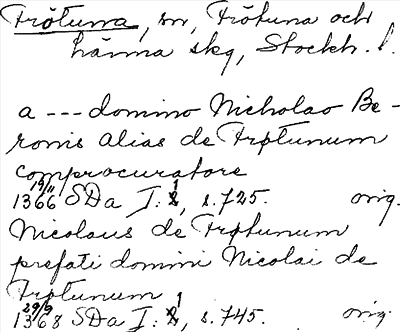 Frötuna, sn, Frötuna och
Länna skg, Stockh. l.
a --- domino Nicholao Be-
ronis alias de Frøtunum
comprocuratore
19/11
1366 SDa I:1, s. 725. orig.
Nicolaus de Frøtunum
prefati domini Nicolai de
Frøtunum
29/9
1368 SDa I:1, s. 745. orig.